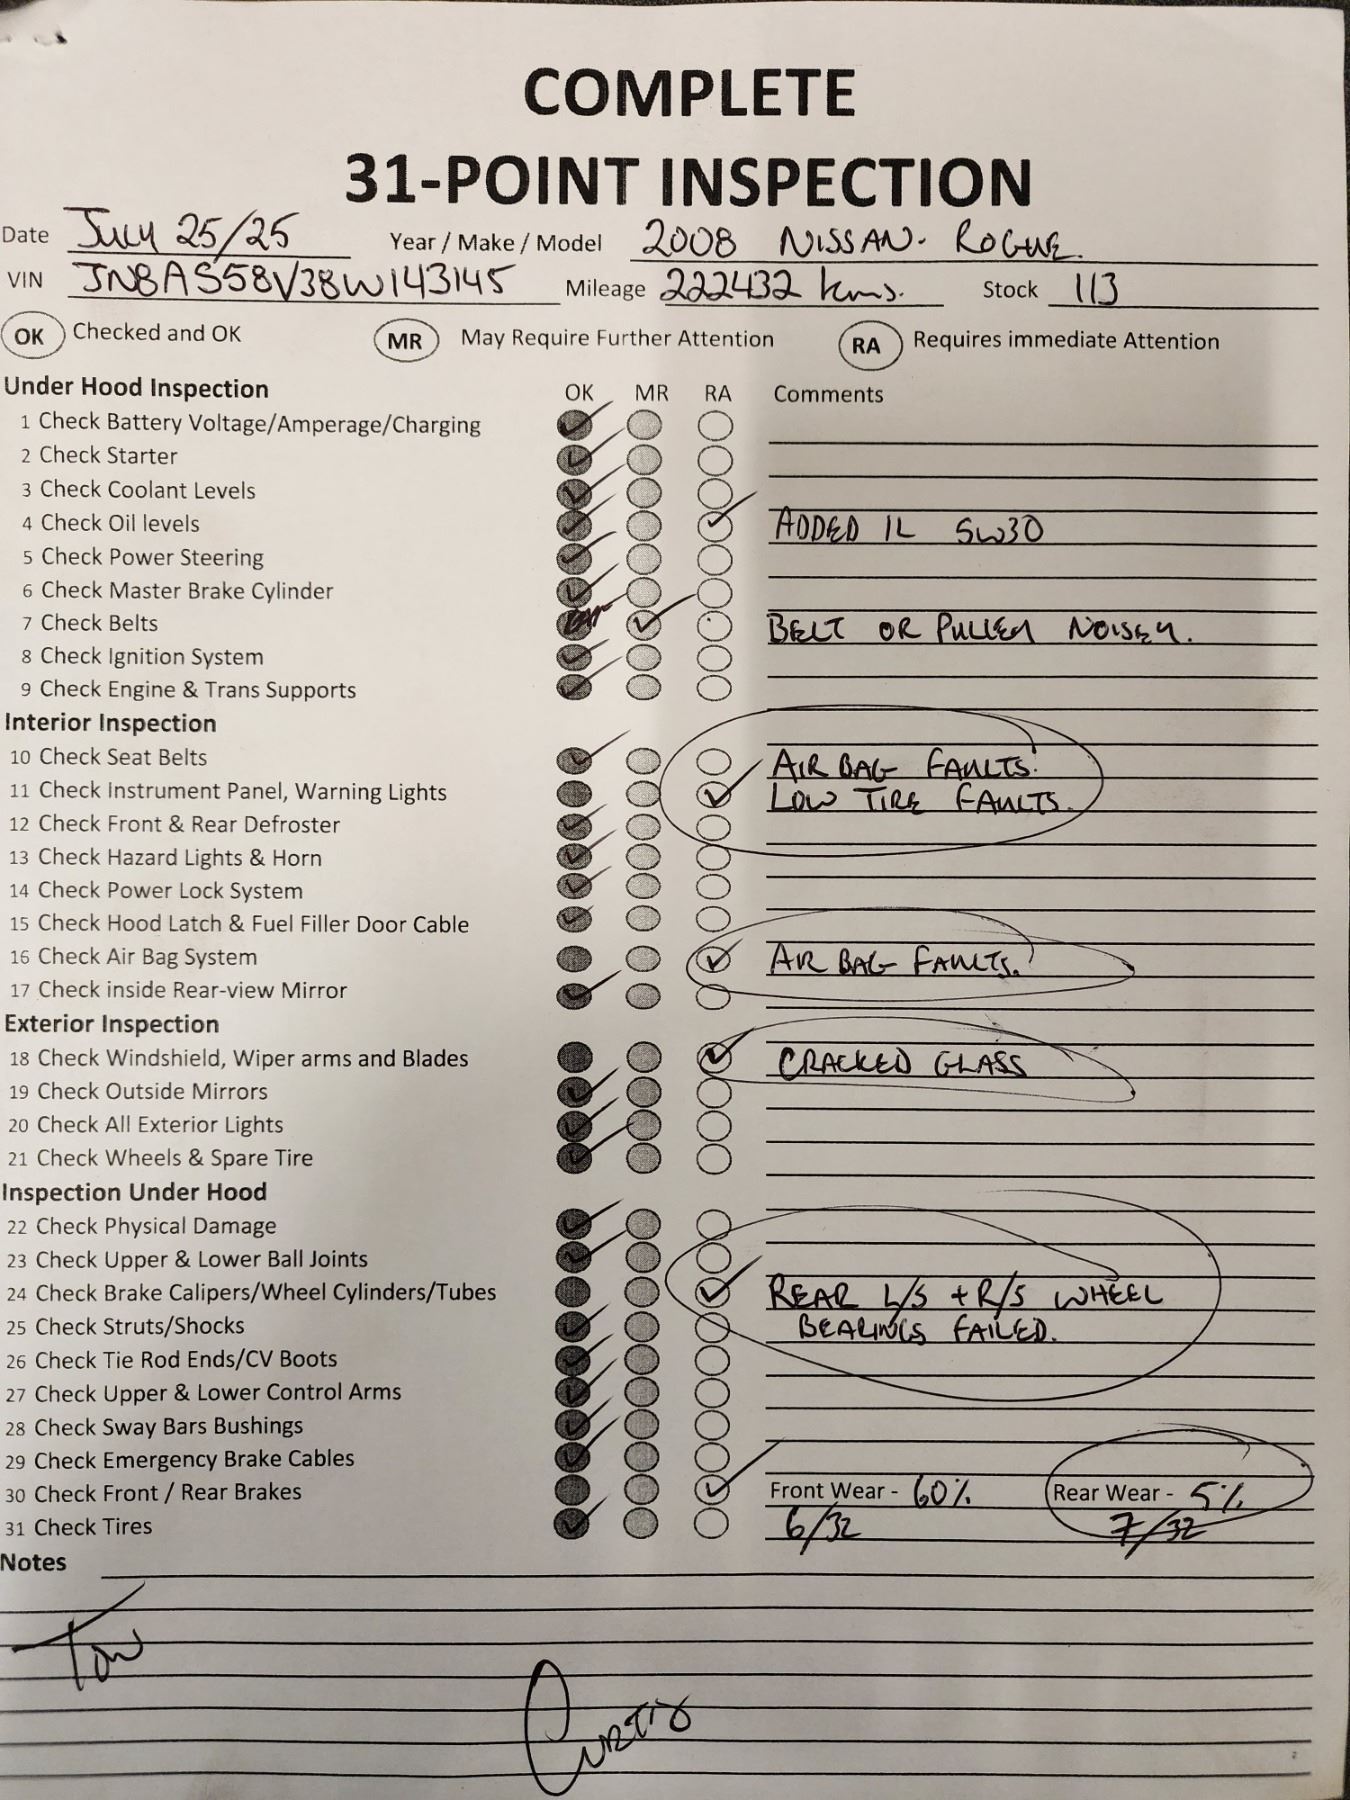 COMPLETE
31-POINT INSPECTION
Date July 25/25 Year / Make / Model 2008 NISSAN. ROGUE.
VIN JN8AS58V38W143145 Mileage 222432 kms. Stock 113
OK Checked and OK MR May Require Further Attention RA Requires immediate Attention
Under Hood Inspection OK MR RA Comments
1 Check Battery Voltage/Amperage/Charging
2 Check Starter
3 Check Coolant Levels
4 Check Oil levels ADDED 1L 5W30
5 Check Power Steering
6 Check Master Brake Cylinder
7 Check Belts BELT OR PULLEY NOISEY.
8 Check Ignition System
9 Check Engine & Trans Supports
Interior Inspection
10 Check Seat Belts AIR BAG FAULTS.
11 Check Instrument Panel, Warning Lights LOW TIRE FAULTS.
12 Check Front & Rear Defroster
13 Check Hazard Lights & Horn
14 Check Power Lock System
15 Check Hood Latch & Fuel Filler Door Cable
16 Check Air Bag System AIR BAG FAULTS.
17 Check inside Rear-view Mirror
Exterior Inspection
18 Check Windshield, Wiper arms and Blades CRACKED GLASS
19 Check Outside Mirrors
20 Check All Exterior Lights
21 Check Wheels & Spare Tire
Inspection Under Hood
22 Check Physical Damage
23 Check Upper & Lower Ball Joints
24 Check Brake Calipers/Wheel Cylinders/Tubes REAR L/S + R/S WHEEL
25 Check Struts/Shocks BEARINGS FAILED.
26 Check Tie Rod Ends/CV Boots
27 Check Upper & Lower Control Arms
28 Check Sway Bars Bushings
29 Check Emergency Brake Cables
30 Check Front / Rear Brakes Front Wear - 60% Rear Wear - 5%
31 Check Tires 6/32 7/32
Notes
Tow
Curtis